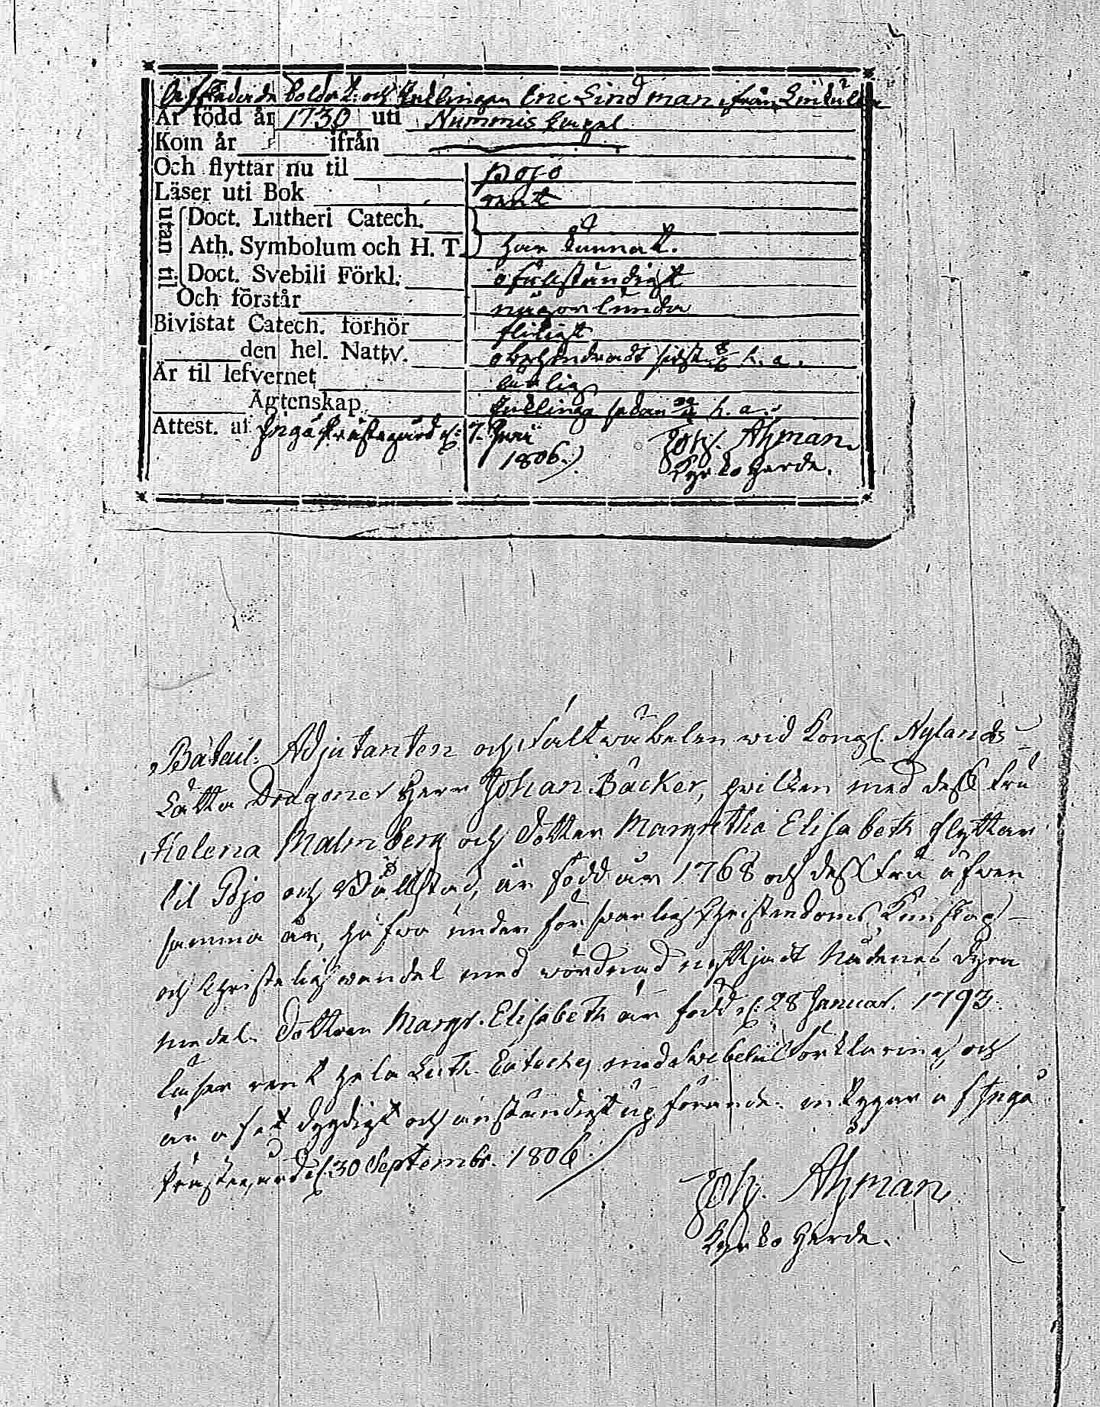 Afskedade Soldat: och Enklingen Eric Lindman ifrån
Är född år 1730 uti Nummis Capel
Kom år ifrån
Och flyttar nu til Pojo
Läser uti Bok rent
utan til
Doct. Lutheri Catech.
Ath. Symbolum och H. T. har kunnat.
Doct. Svebilii Förkl. ofullständigt
Och förstår någorlunda
Bivistat Catech. förhör fliligt
den hel. Nattv. obehindradt sidst h. a.
Är til lefvernet ärlig
Ägtenskap Enkling sedan h. a.
Attest. af Ingå Prästegård d: 7. Junii
1806. Joh. Ahman
Kyrko Herde.
Batail: Adjutanten och Fältwäbelen wid Kongl. Nylands
Lätta Dragoner Herr Johan Bäcker, hwilken med dess Fru
Helena Malmberg och Dotter Margretha Elisabeth flyttar
til Pojo och Bållstad, är född år 1768 och dess Fru äfwen
samma år, hafwa under försvarlig Christendoms Kunskap
och Christelig wandel med wördnad nyttjadt Nådenes dyra
medel. Dottren Margr. Elisabeth är född d: 28 Januar. 1793.
läser rent hela Luth. Cateches med Swebelii Förklaring och
är af et dygdigt och anständigt upförande. intygar af Ingå
Prästegård d: 30 Septembr. 1806.
Joh. Ahman
Kyrko Herde.